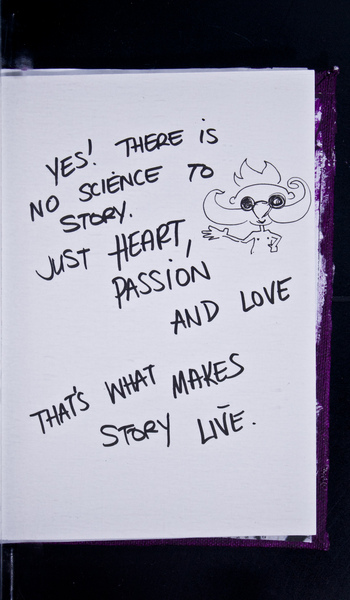 YES! THERE IS
NO SCIENCE TO
STORY.
JUST HEART,
PASSION
AND LOVE
THAT'S WHAT MAKES
STORY LIVE.